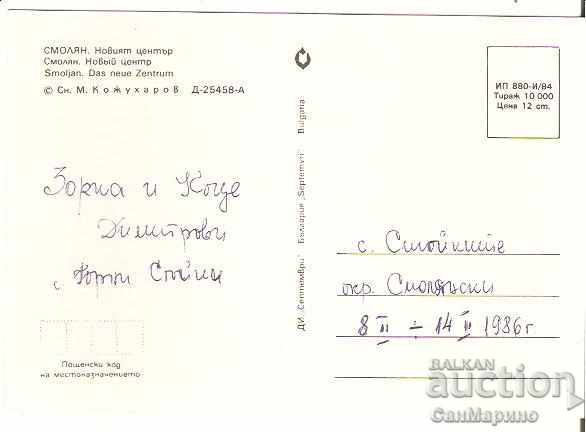 СМОЛЯН. Новият център
Смолян. Новый центр
Smoljan. Das neue Zentrum
© Сн. М. Кожухаров Д-25458-А
ИП 880-И/84
Тираж 10 000
Цена 12 ст.
ДИ „Септември“ България „Septemvri“ Bulgaria
Зорка и Коце
Димитрови
с
с. Стойките
окр. Смолянски
8 II ÷ 14 II 1986 г
Пощенски код
на местоназначението
BALKAN
auction
СанМарино